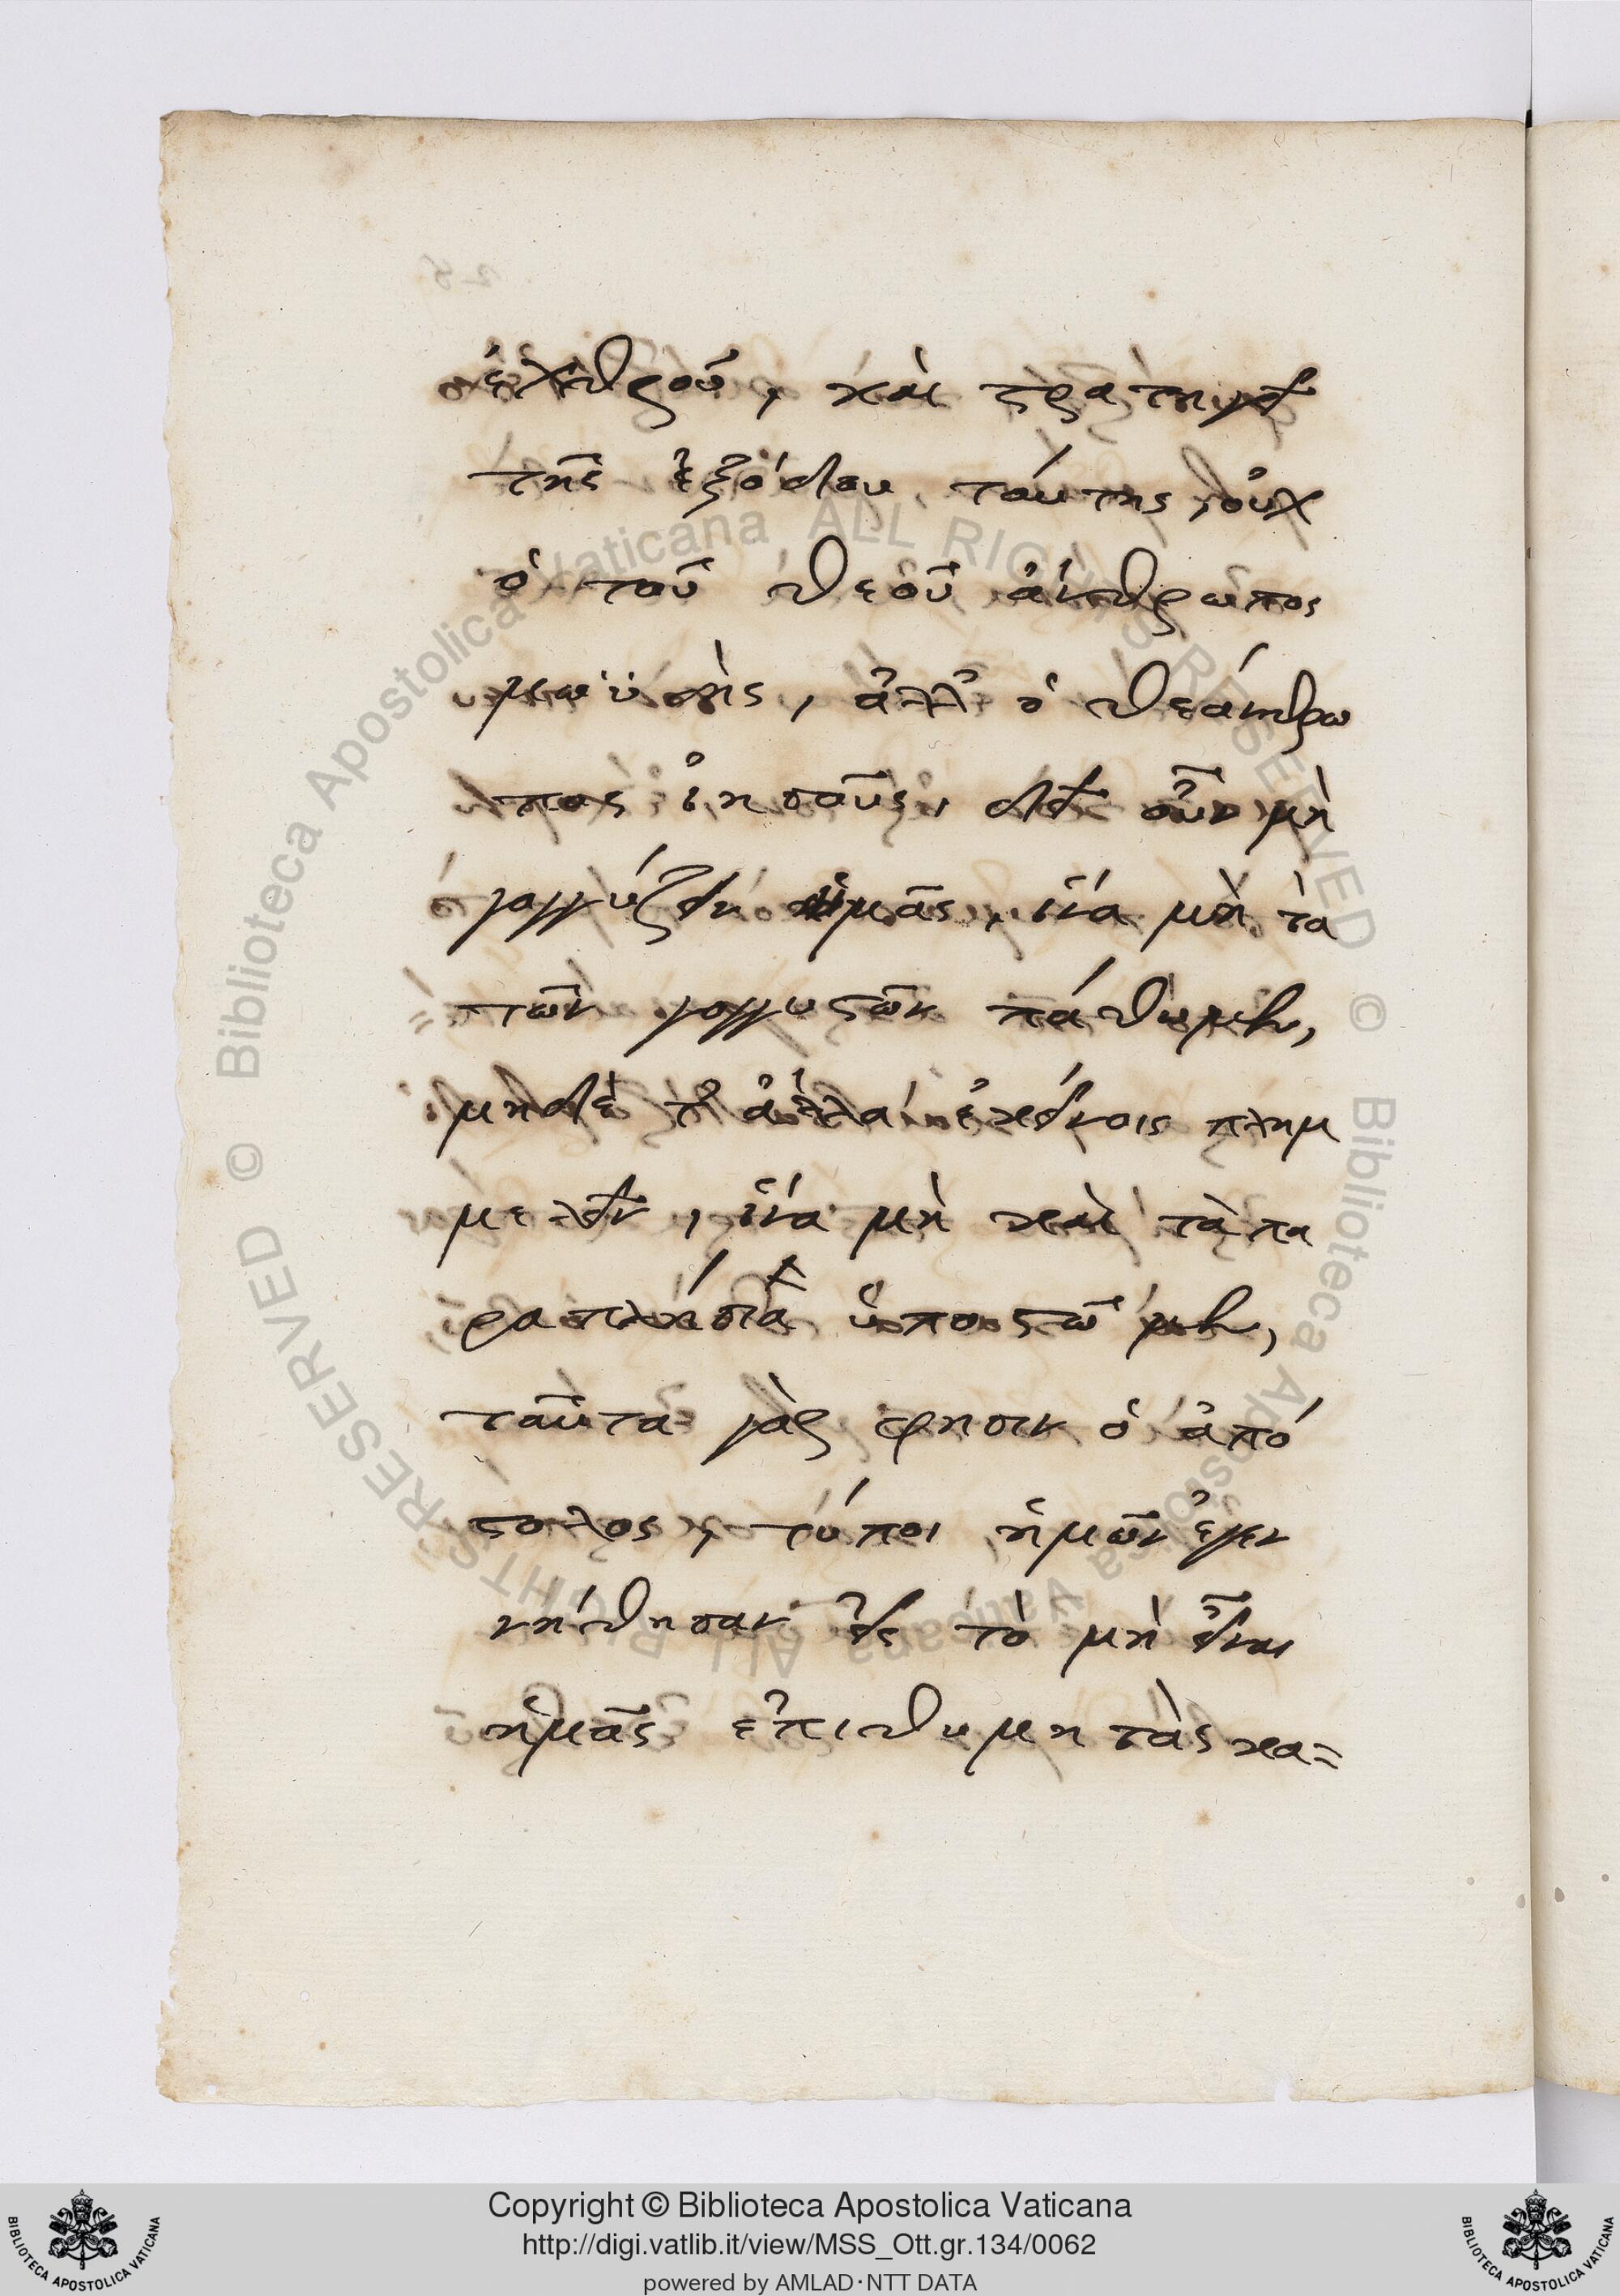 ἐχθροῦ, καὶ στρατηγεῖ
τῆς ἐξόδου ταύτης, οὐχ
ὁ τοῦ θεοῦ ἄνθρωπος
μωϋσῆς, ἀλλ' ὁ θεάνθρω
πος ἰησοῦς, δεῖ οὖν μὴ
γογγύζειν ἡμᾶς, ἵνα μὴ τὰ
τῶν γογγυστῶν πάθωμεν,
μηδὲ τ' ἄλλα ἐκείνοις πλημ
μελεῖν, ἵνα μὴ καὶ τὰ πα
ραπλήσια ὑποστῶμεν,
ταῦτα γὰρ φησιν ὁ ἀπό
στολος, τύποι ἡμῶν ἐγεν
νήθησαν εἰς τὸ μὴ εἶναι
ἡμᾶς ἐπιθυμητὰς κα=
Copyright © Biblioteca Apostolica Vaticana
http://digi.vatlib.it/view/MSS_Ott.gr.134/0062
powered by AMLAD·NTT DATA
BIBLIOTECA APOSTOLICA VATICANA
BIBLIOTECA APOSTOLICA VATICANA
© Biblioteca Apostolica Vaticana ALL RIGHTS RESERVED
© Biblioteca Apostolica Vaticana ALL RIGHTS RESERVED